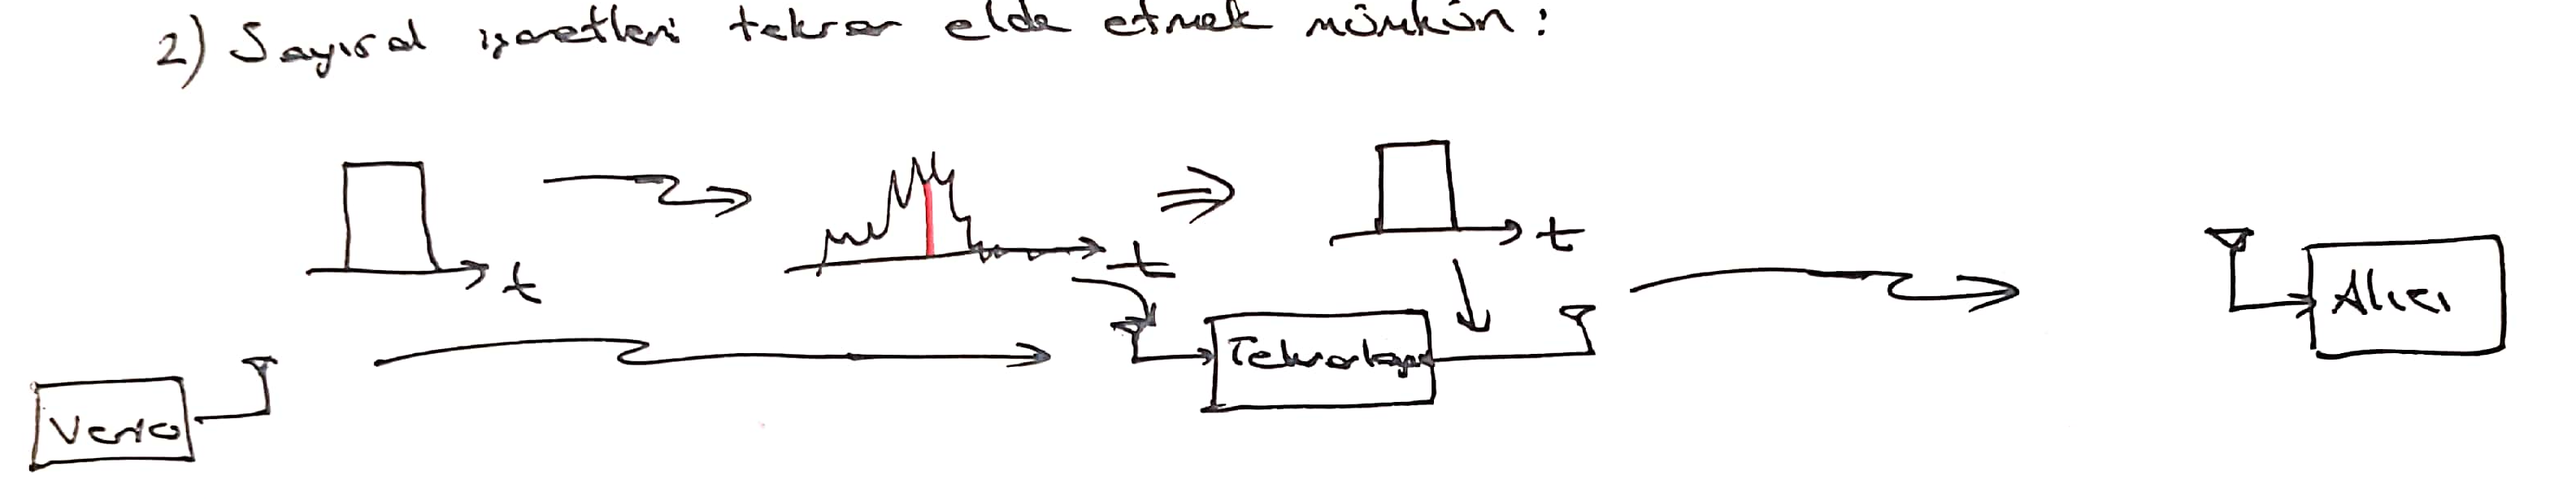 2) Sayısal işaretleri tekrar elde etmek mümkün:
t
t
t
Verici
Tekrarlayıcı
Alıcı